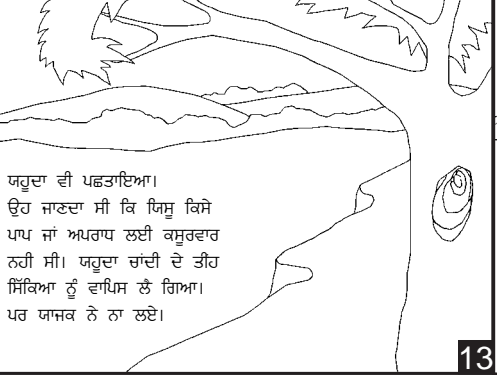 ਯਹੂਦਾ ਵੀ ਪਛਤਾਇਆ।
ਉਹ ਜਾਣਦਾ ਸੀ ਕਿ ਯਿਸੂ ਕਿਸੇ
ਪਾਪ ਜਾਂ ਅਪਰਾਧ ਲਈ ਕਸੂਰਵਾਰ
ਨਹੀ ਸੀ। ਯਹੂਦਾ ਚਾਂਦੀ ਦੇ ਤੀਹ
ਸਿੱਕਿਆ ਨੂੰ ਵਾਪਿਸ ਲੈ ਗਿਆ।
ਪਰ ਯਾਜਕ ਨੇ ਨਾ ਲਏ।
13